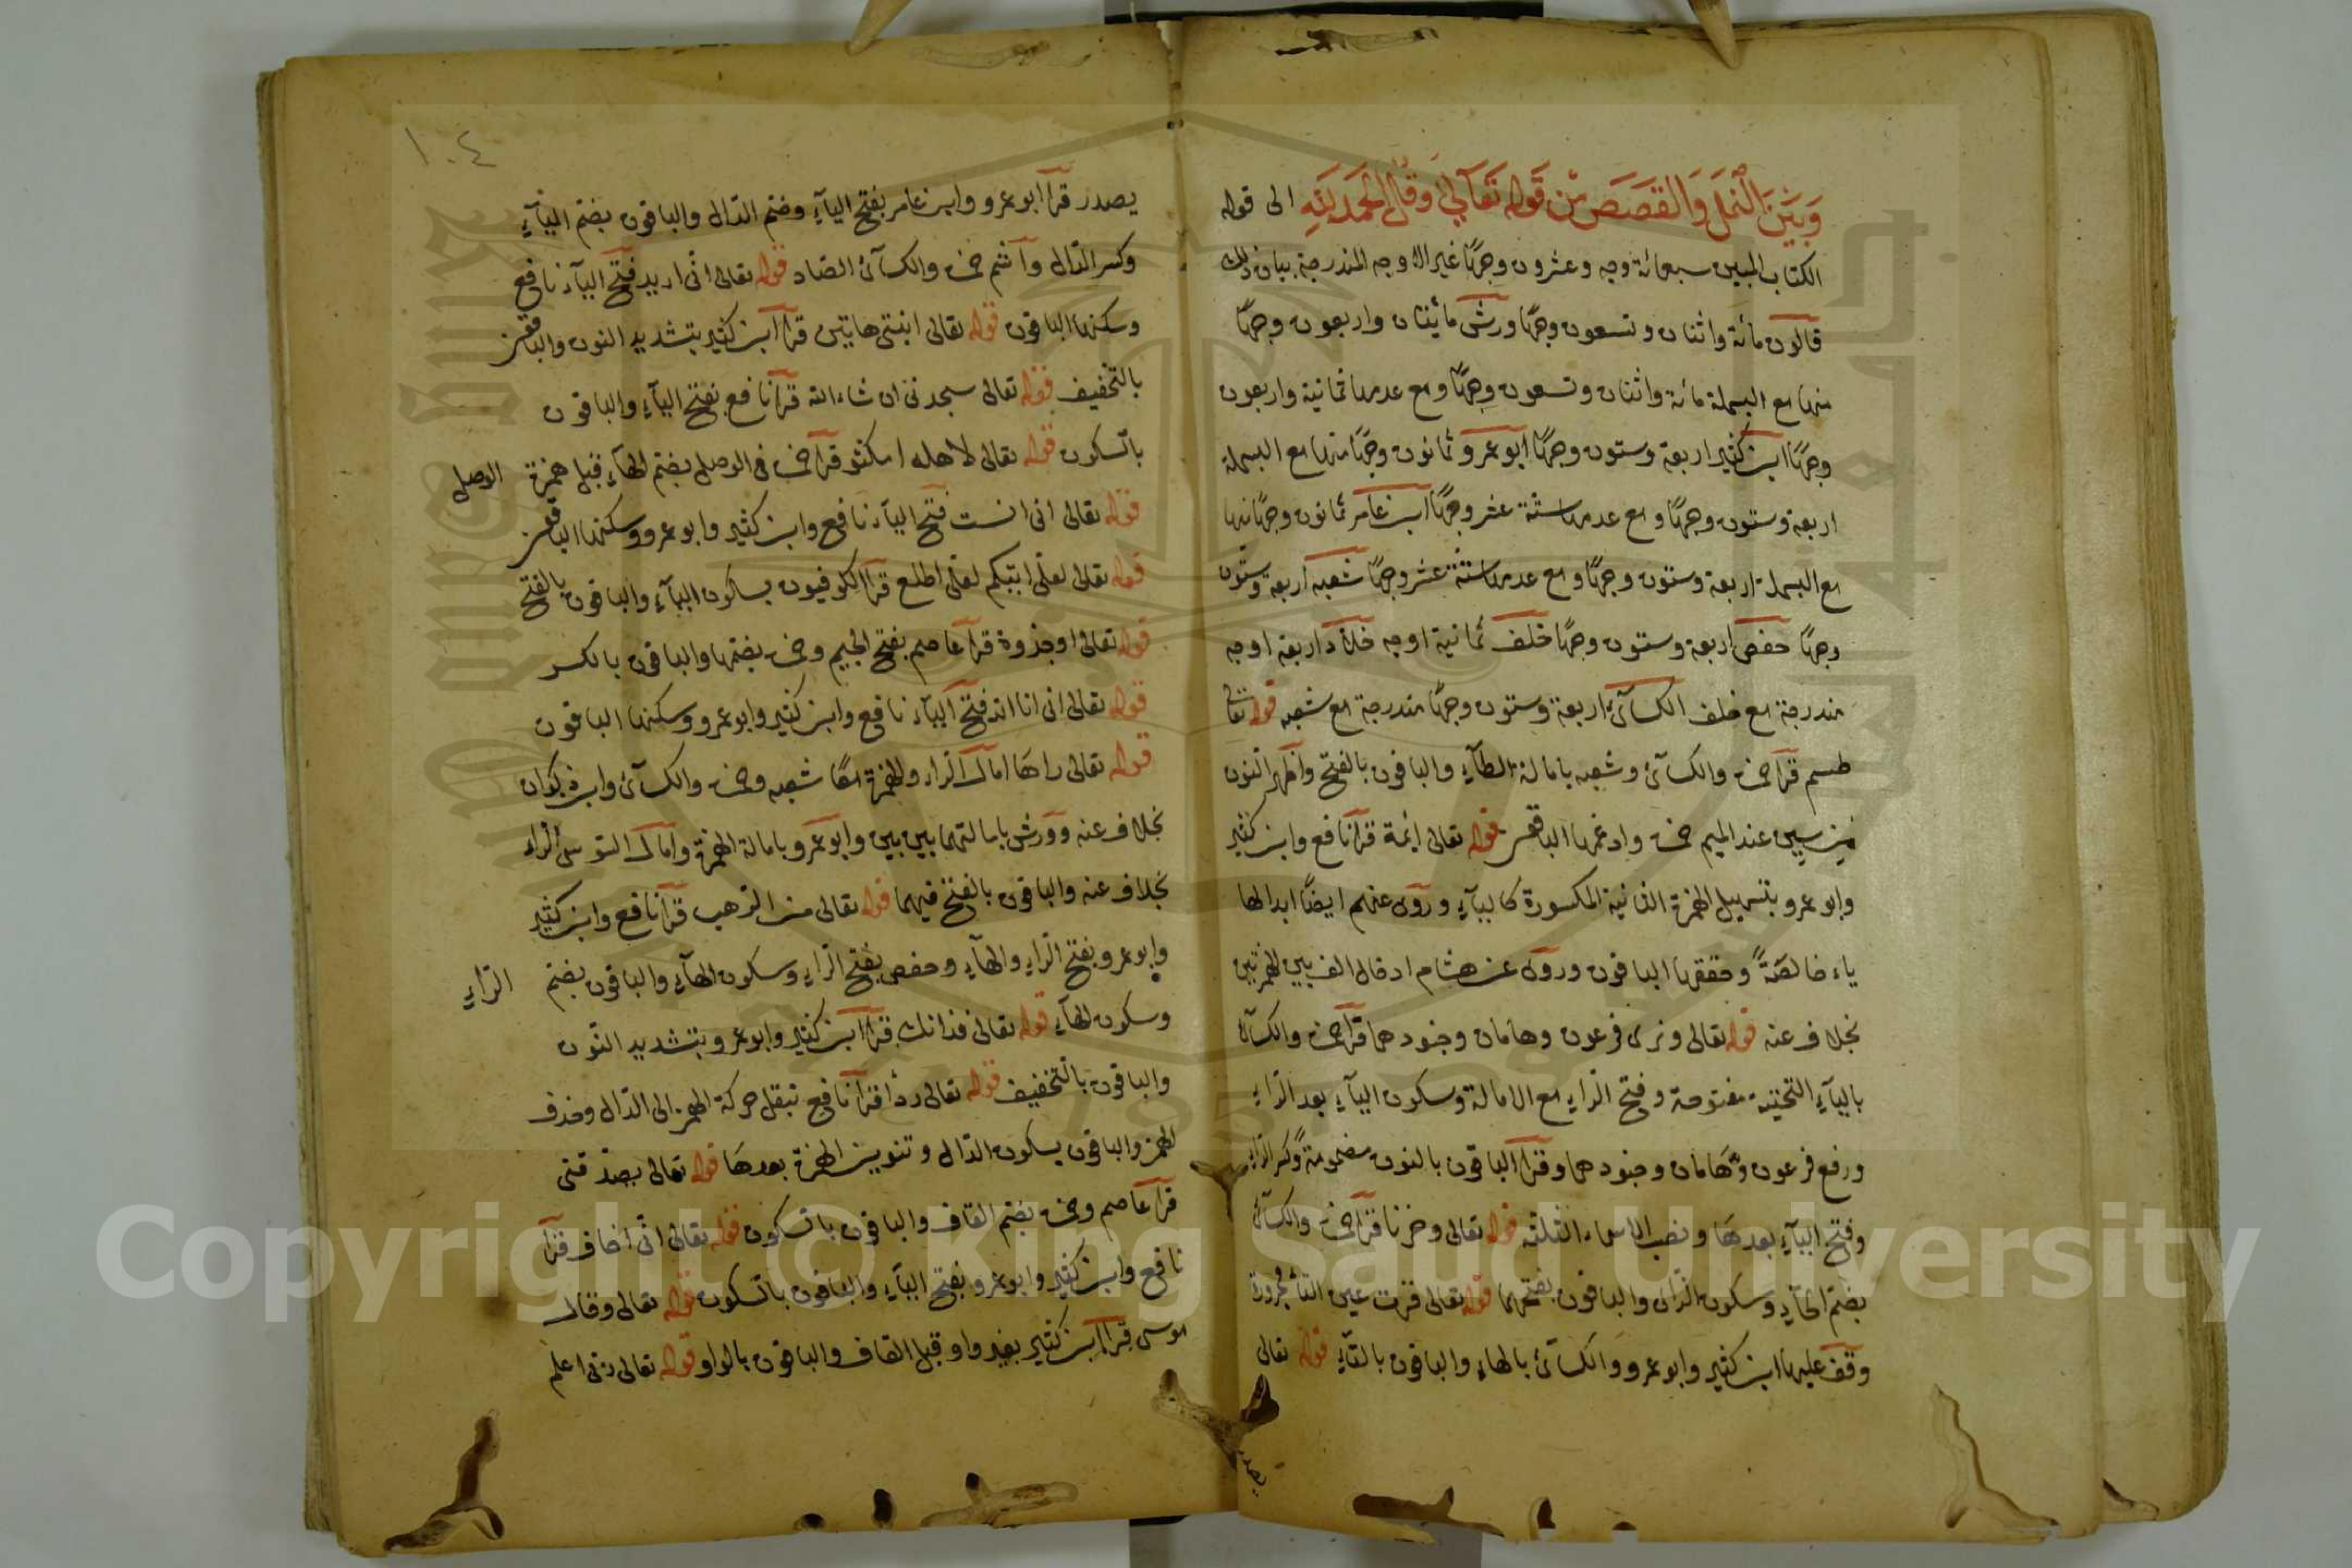 وَبَيْنَ النَّمْلِ وَالقَصَصِ مِنْ قَوْلِهِ تَعَالَى وَقُلِ الحَمْدُ لِلَّهِ الى قوله
الكتاب المبين سبعمائة وجه وعشرون وجهًا غير الاوجه المندرجة بيان ذلك
قالون مائة واثنان وتسعون وجهًا ورش مائتان واربعون وجهًا
منها مع البسملة مائة واثنان وتسعون وجهًا ومع عدمها ثمانية واربعون
وجهًا ابن كثير اربعة وستون وجهًا ابو عمرو ثمانون وجهًا منها مع البسملة
اربعة وستون وجهًا ومع عدمها ستة عشر وجهًا ابن عامر ثمانون وجهًا منها
مع البسملة اربعة وستون وجهًا ومع عدمها ستة عشر وجهًا شعبه اربعة وستون
وجهًا حفص اربعة وستون وجهًا خلف ثمانية اوجه خلاد اربعة اوجه
مندرجة مع خلف الكسآئي اربعة وستون وجهًا مندرجة مع شعبه قوله تعالى
طسم قرأ حمزة والكسآئي وشعبه بامالة الطآءِ والباقون بالفتح واظهر النون
من سين عند الميم حمزة وادغمها الباقون قوله تعالى ائمة قرأ نافع وابن كثير
وابو عمرو بتسهيل الهمزة الثانية المكسورة كاليآءِ وروى عنهم ايضًا ابدالها
ياء خالصةً وحققها الباقون وروى عن هشام ادخال الف بين الهمزتين
بخلاف عنه قوله تعالى ونرى فرعون وهامان وجنودهما قرأ حمزة والكسآئي
باليآءِ التحتية مفتوحة وفتح الراءِ مع الامالة وسكون اليآءِ بعد الراءِ
ورفع فرعون وهامان وجنودهما وقرأ الباقون بالنون مضمومةً وكسر الراءِ
وفتح اليآءِ بعدها ونصب الاسماء الثلثة قوله تعالى وحزنا قرأ حمزة والكسآئي
بضم الحآءِ وسكون الزاى والباقون بفتحهما قوله تعالى قرت عين التآء مجرورة
وقف عليها ابن كثير وابو عمرو والكسآئي بالهاءِ والباقون بالتآءِ قوله تعالى
يصدر
١٠٤
يصدر قرأ ابو عمرو وابن عامر بفتح اليآءِ وضم الدال والباقون بضم اليآءِ
وكسر الدال وأشم حمزة والكسآئي الصاد قوله تعالى انى اريد فتح اليآء نافع
وسكنها الباقون قوله تعالى ابنتى هاتين قرأ ابن كثير بتشديد النون والباقون
بالتخفيف قوله تعالى ستجدنى ان شاء الله قرأ نافع بفتح اليآءِ والباقون
بالسكون قوله تعالى لاهله امكثوا قرأ حمزة فى الوصل بضم الهآءِ قبل همزة الوصل
قوله تعالى انى انست فتح اليآء نافع وابن كثير وابو عمرو وسكنها الباقون
قوله تعالى لعلى اتيكم لعلى اطلع قرأ الكوفيون بسكون اليآءِ والباقون بالفتح
قوله تعالى اوجذوة قرأ عاصم بفتح الجيم وحمزة بضمها والباقون بالكسر
قوله تعالى انى انا الله فتح اليآء نافع وابن كثير وابو عمرو وسكنها الباقون
قوله تعالى راها امال الراء والهمزة معًا شعبه وحمزة والكسآئي وابن ذكوان
بخلاف عنه وورش بامالتهما بين بين وابو عمرو بامالة الهمزة وامال السوسى الراء
بخلاف عنه والباقون بالفتح فيهما قوله تعالى من الرهب قرأ نافع وابن كثير
وابو عمرو بفتح الراءِ والهآءِ وحفص بفتح الراءِ وسكون الهآءِ والباقون بضم الراءِ
وسكون الهآءِ قوله تعالى فذانك قرأ ابن كثير وابو عمرو بتشديد النون
والباقون بالتخفيف قوله تعالى ردأ قرأ نافع بنقل حركة الهمز الى الدال وحذف
الهمز والباقون بسكون الدال وتنوين الهمزة بعدها قوله تعالى يصدقنى
قرأ عاصم وحمزة بضم القاف والباقون بالسكون قوله تعالى انى اخاف قرأ
نافع وابن كثير وابو عمرو بفتح اليآءِ والباقون بالسكون قوله تعالى وقال
موسى قرأ ابن كثير بغير واو قبل القاف والباقون بالواو قوله تعالى ربى اعلم
Copyright © King Saud University